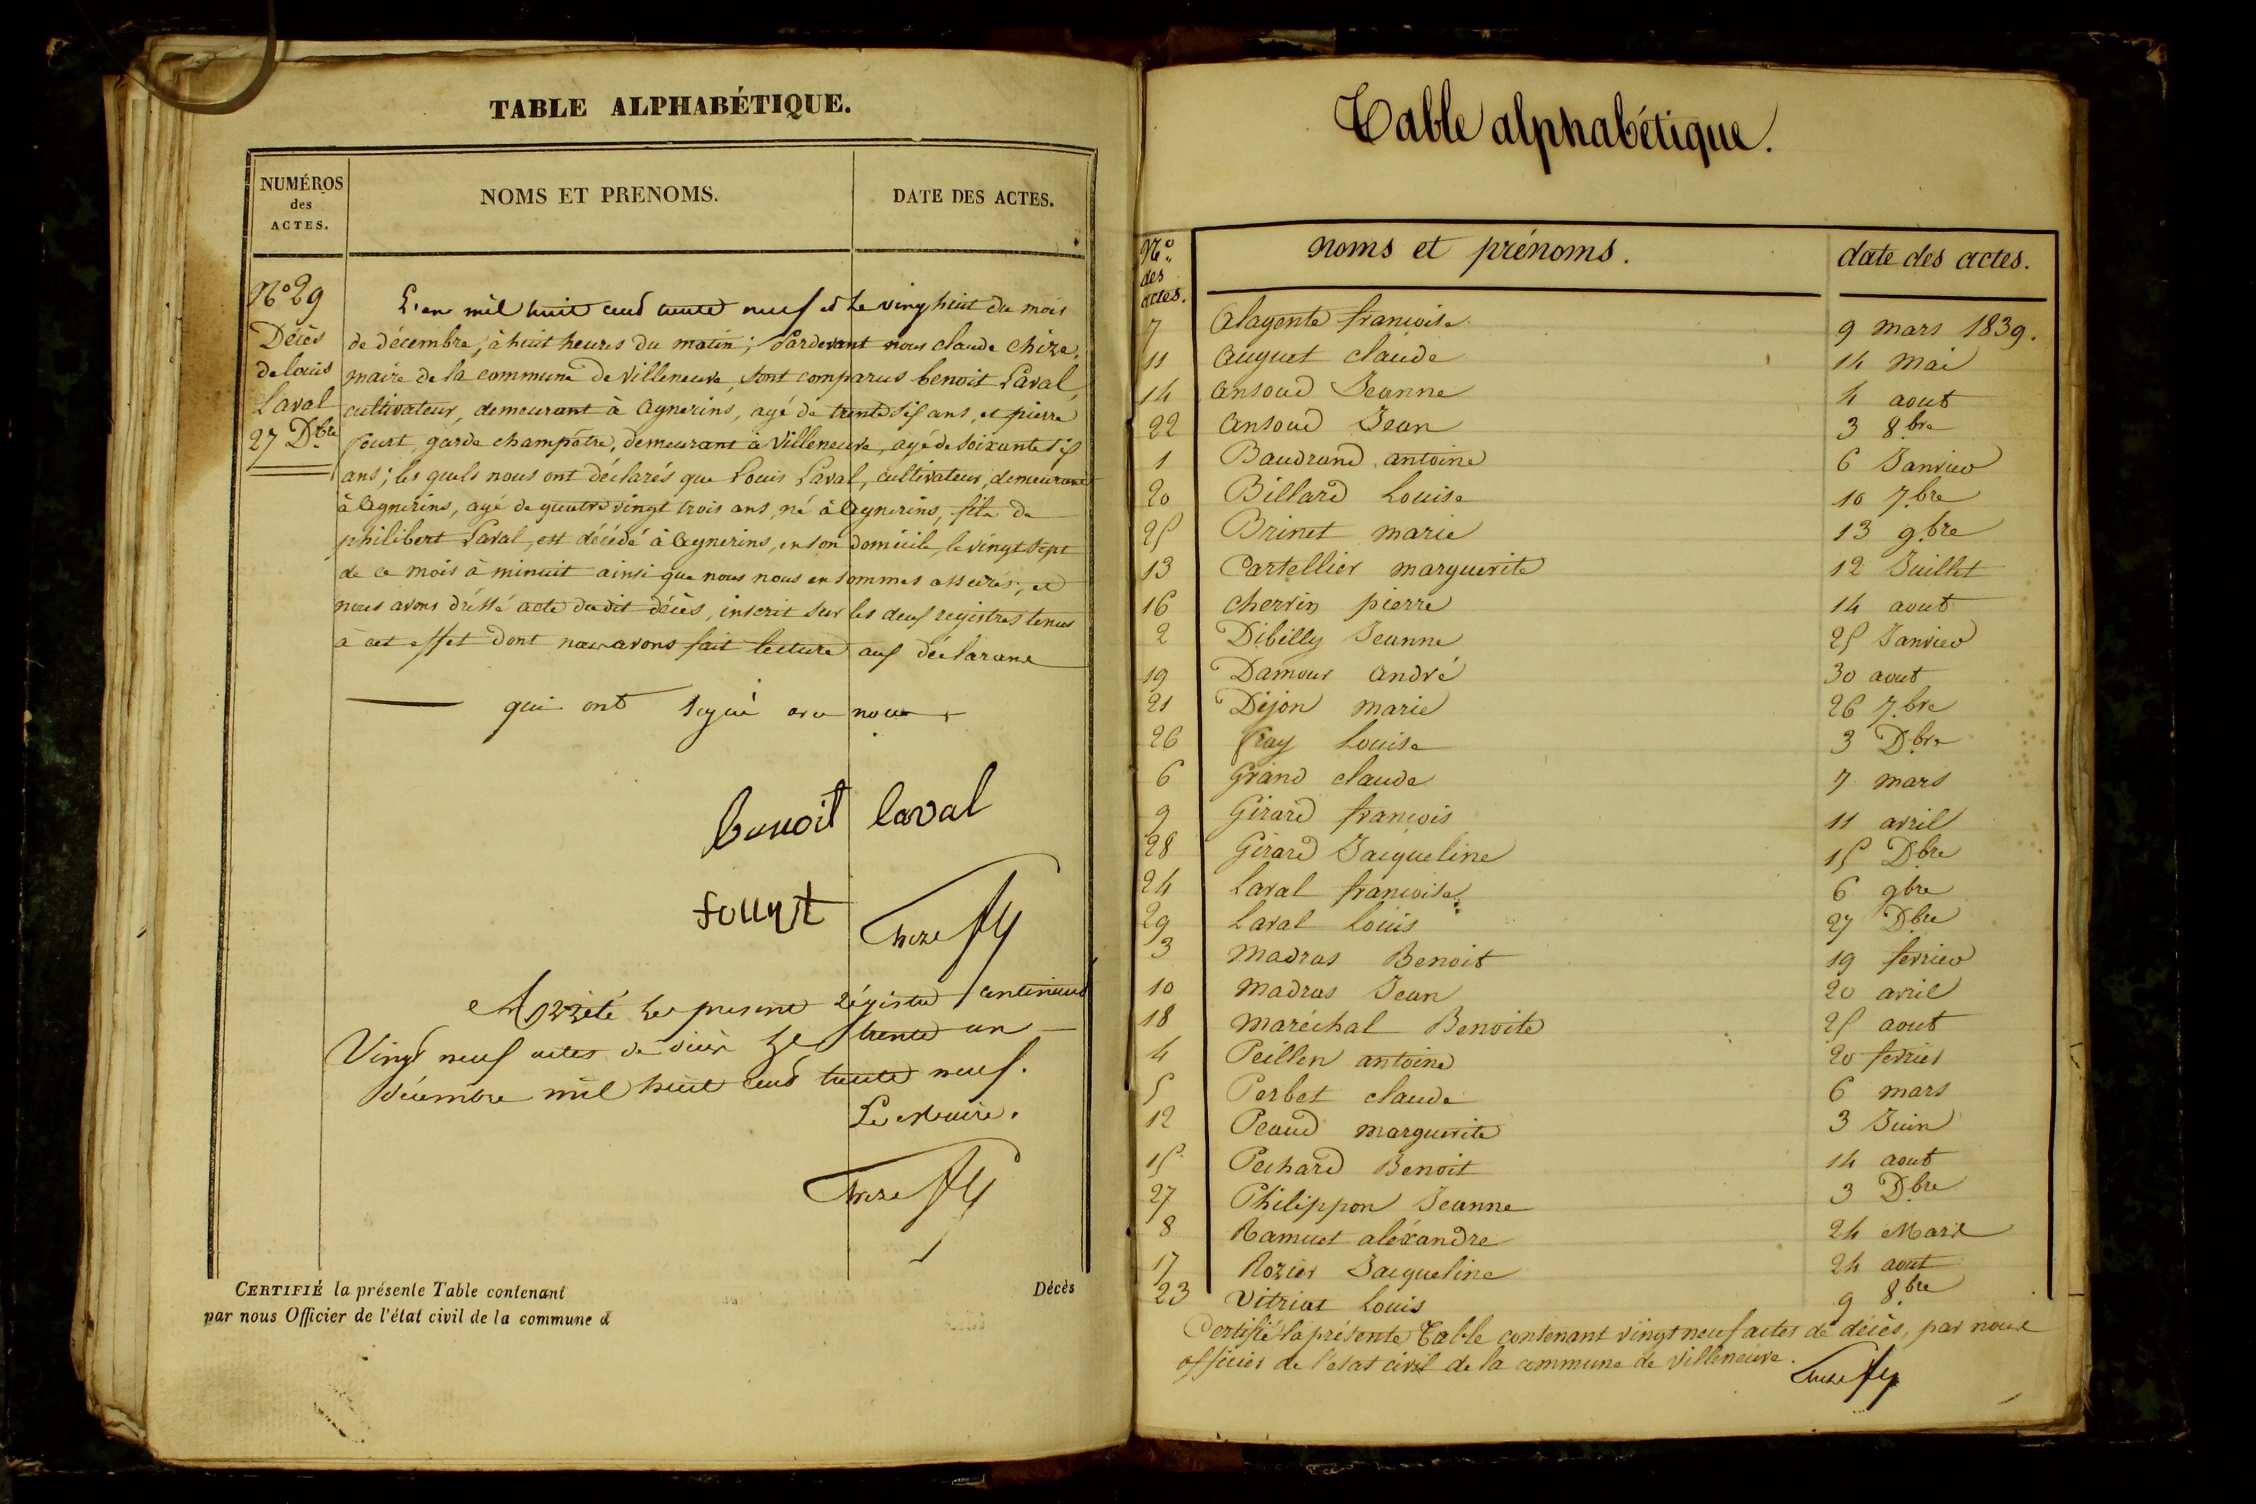 TABLE ALPHABÉTIQUE.
NUMÉROS
des
ACTES.
NOMS ET PRENOMS.
DATE DES ACTES.
N° 29
Décès
de louis
Laval
27 Dbre
L'an mil huit cent trente neuf et le vingt huit du mois
de décembre, à huit heures du matin; Pardevant nous claude Chize,
maire de la commune de Villeneuve, sont comparus benoit Laval,
cultivateur, demeurant à Agnerins, agé de trente six ans, et pierre
garde champêtre, demeurant à Villeneuve, agé de soixante six
ans; les quels nous ont déclarés que Louis Laval, cultivateur, demeurant
à Agnerins, agé de quatre vingt trois ans, né à Agnerins, fils de
philibert Laval, est décédé à Agnerins, en son domicile, le vingt sept
de ce mois à minuit ainsi que nous nous en sommes assurés; et
nous avons dréssé acte du dit décès, inscrit sur les deux registres tenus
à cet effet dont nous avons fait lecture aux déclarant
qui ont signé avec nous
benoit laval
Chize
Arrété le present régistre contenant
Vingt neuf actes de décès le trente un
décembre mil huit cent trente neuf.
Le Maire.
Chize
CERTIFIÉ la présente Table contenant
Décès
par nous Officier de l'état civil de la commune d
Table alphabétique.
Nos
des
actes.
noms et prénoms.
date des actes.
7 Alagente francoise 9 mars 1839.
11 Auguet claude 14 Mai
14 ansoud Jeanne 4 aout
22 Ansoud Jean 3 8.bre
1 Baudrand antoine 6 Janvier
20 Billard Louise 10 7.bre
25 Brinet marie 13 9.bre
13 Cartellier marguerite 12 Juillet
16 chervin pierre 14 aout
2 Dibilly Jeanne 25 Janvier
19 Damour André 30 aout
21 Dijon marie 26 7.bre
26 Fray Louise 3 D.bre
6 Grand claude 7 mars
9 Girard francois 11 avril
28 Girard Jacqueline 15 D.bre
24 Laval francoise 6 9bre
29 Laval Louis 27 D.bre
3 Madras Benoit 19 fevrier
10 Madras Jean 20 avril
18 Maréchal Benoite 25 aout
4 Peillon antoine 20 fevrier
5 Perbet claude 6 mars
12 Peaud marguerite 3 Juin
15 Pechard Benoit 14 aout
27 Philippon Jeanne 3 D.bre
8 Ramuet aléxandre 24 Mars
17 Rozier Jacqueline 24 aout
23 Vitriat Louis 9 8.bre
Certifié la présente Table contenant vingt neuf actes de décès, par nous
officier de l'etat civil de la commune de Villeneuve.
Chize